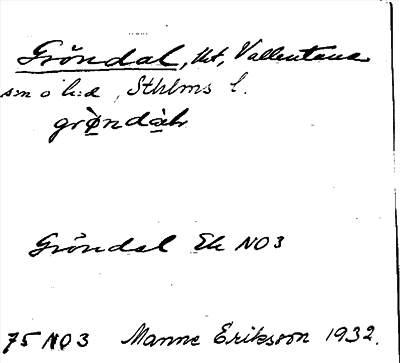 Gröndal, lht, Vallentuna
sn o hd, Sthlms l.
grø̀ndàl
Gröndal Ek NO3
75 NO3 Manne Eriksson 1932.